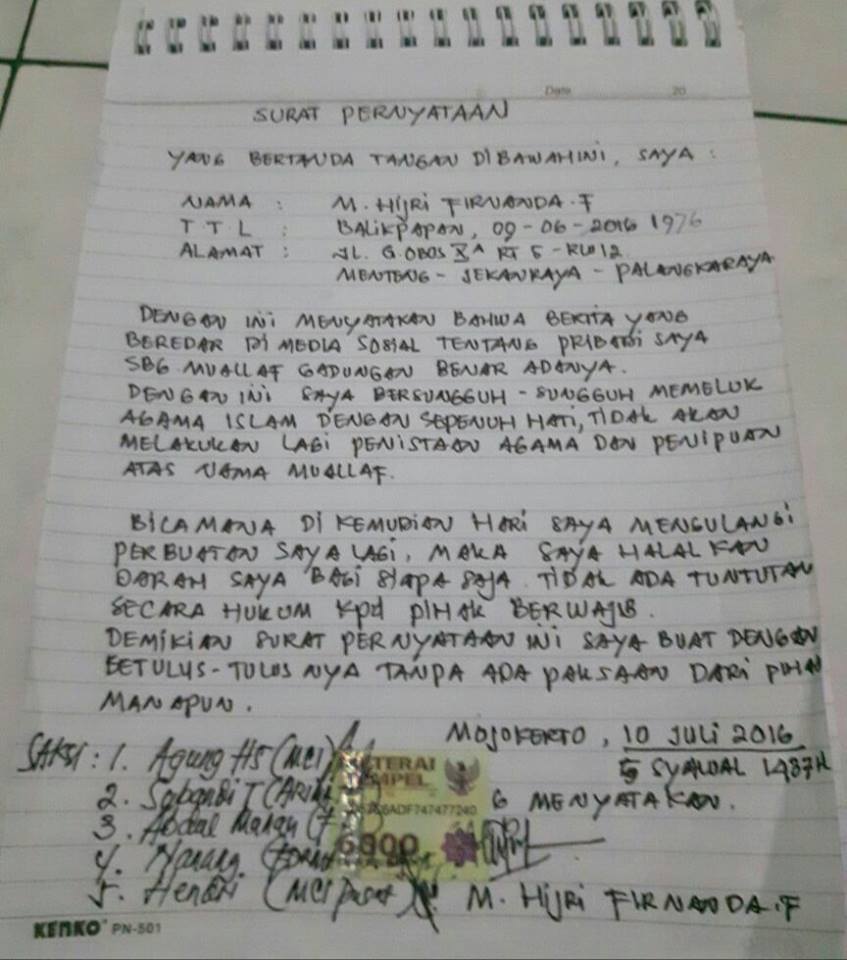 Date 20
SURAT PERNYATAAN
YANG BERTANDA TANGAN DIBAWAH INI, SAYA :
NAMA : M. HIJRI FIRNANDA.F
T T L : BALIKPAPAN, 09-06-2016 1976
ALAMAT : JL. G.OBOS XA RT 5 - RW 12
MENTENG - JEKANRAYA - PALANGKARAYA
DENGAN INI MENYATAKAN BAHWA BERITA YANG
BEREDAR DI MEDIA SOSIAL TENTANG PRIBADI SAYA
SBG MUALLAF GADUNGAN BENAR ADANYA.
DENGAN INI SAYA BERSUNGGUH - SUNGGUH MEMELUK
AGAMA ISLAM DENGAN SEPENUH HATI, TIDAK AKAN
MELAKUKAN LAGI PENISTAAN AGAMA DAN PENIPUAN
ATAS NAMA MUALLAF.
BILAMANA DI KEMUDIAN HARI SAYA MENGULANGI
PERBUATAN SAYA LAGI, MAKA SAYA HALALKAN
DARAH SAYA BAGI SIAPA SAJA. TIDAK ADA TUNTUTAN
SECARA HUKUM KPD PIHAK BERWAJIB.
DEMIKIAN SURAT PERNYATAAN INI SAYA BUAT DENGAN
SETULUS-TULUSNYA TANPA ADA PAKSAAN DARI PIHAK
MANAPUN.
MOJOKERTO, 10 JULI 2016
5 SYAWAL 1437H
SAKSI : 1. Agung HS (MCI)
2.
3. Abdul Manan
4. Nanang
5. Hendri (MCI Pusat)
METERAI
TEMPEL
ADF747477240
6000
MENYATAKAN.
M. HIJRI FIRNANDA.F
KENKO PN-501